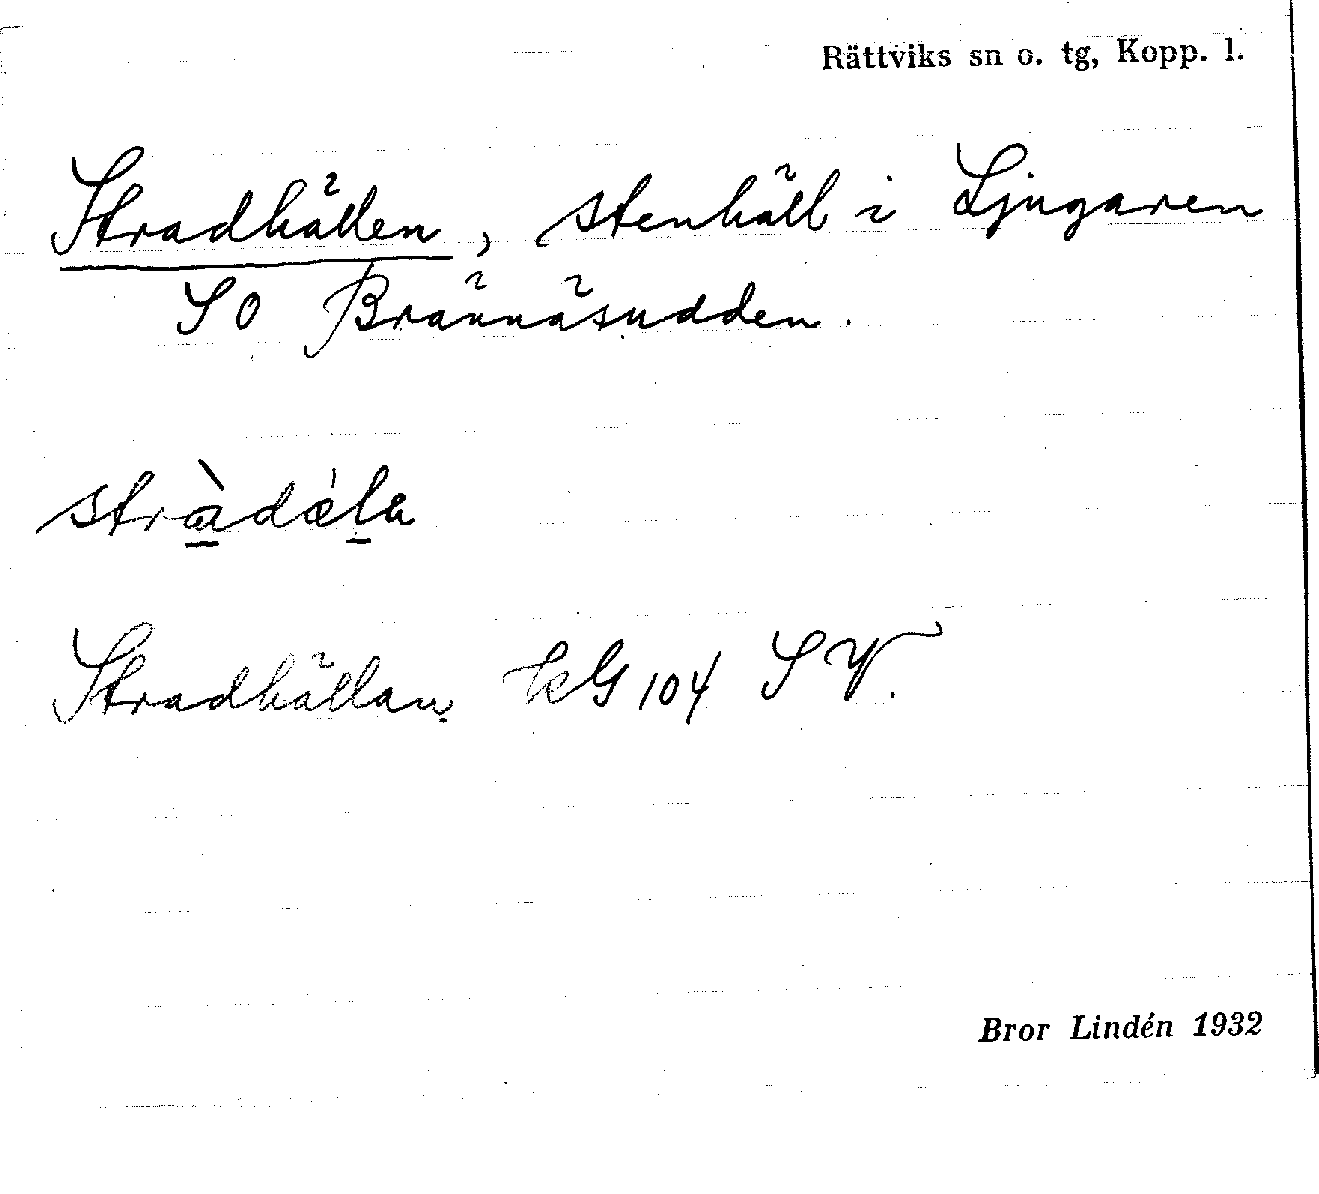 Rättviks sn o. tg, Kopp. l.
Stradhällen, stenhäll i Ljugaren
SO Brännäsudden.
stràdǽla
Stradhällan kG 104 SV.
Bror Lindén 1932